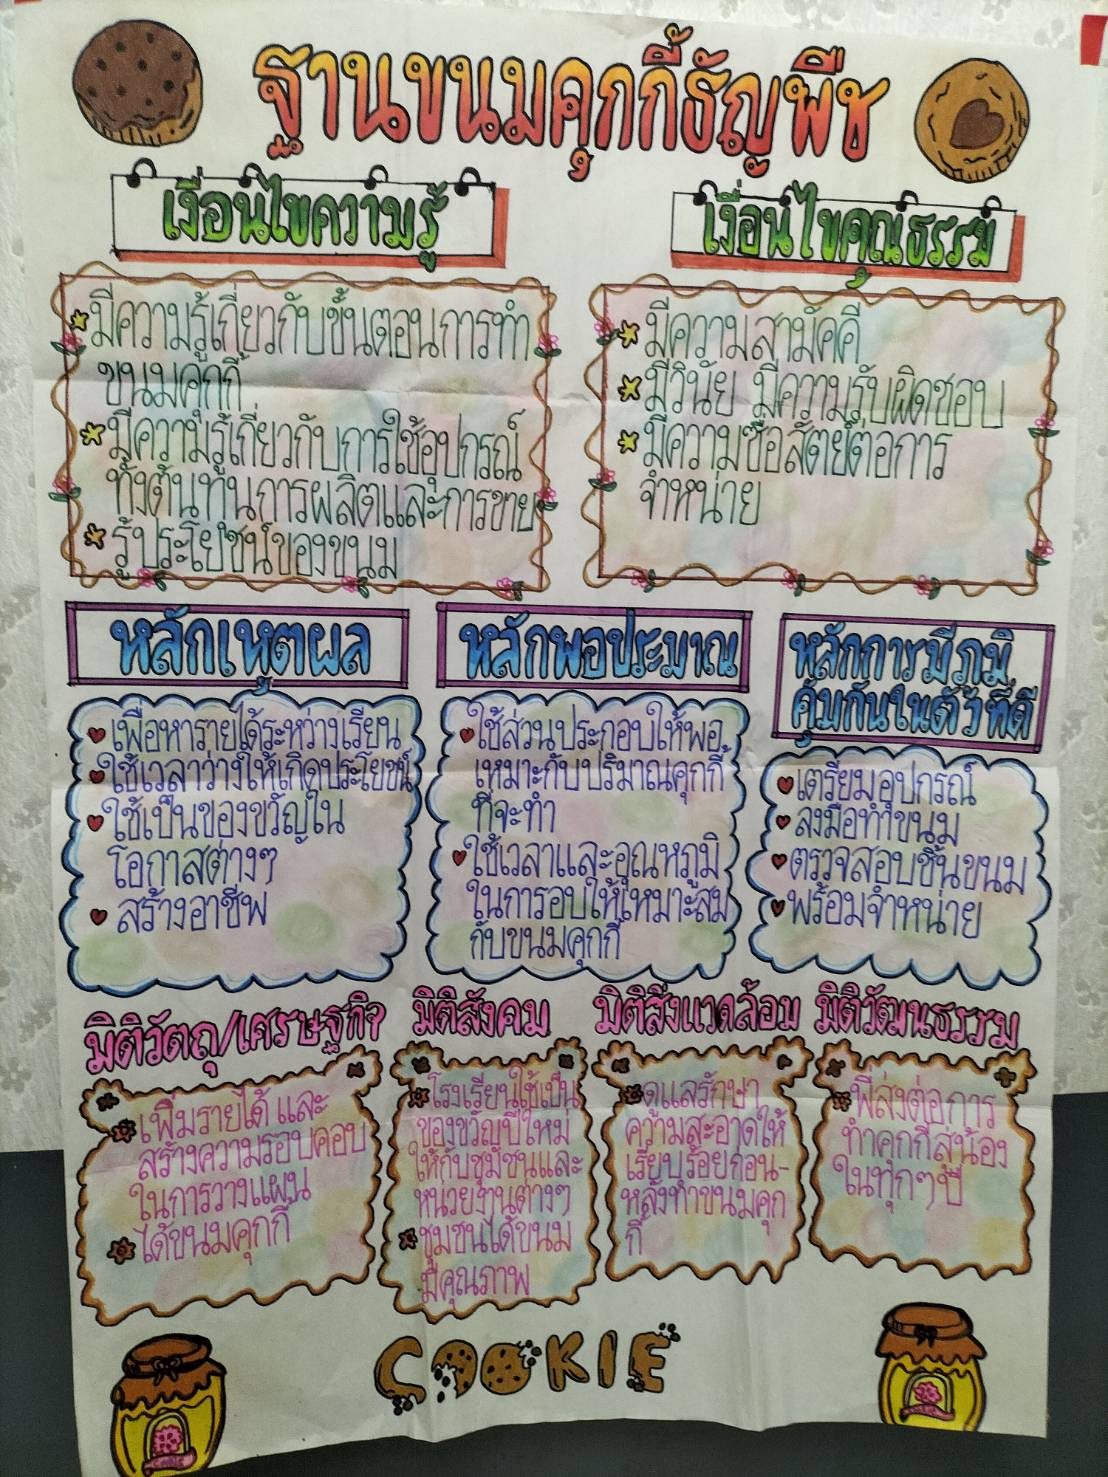 ฐานขนมคุกกี้ธัญพืช
เงื่อนไขความรู้
มีความรู้เกี่ยวกับขั้นตอนการทำ
ขนมคุกกี้
มีความรู้เกี่ยวกับการใช้อุปกรณ์
ทั้งต้นทุนการผลิตและการขาย
รู้ประโยชน์ของขนม
เงื่อนไขคุณธรรม
มีความสามัคคี
มีวินัย มีความรับผิดชอบ
มีความซื่อสัตย์ต่อการ
จำหน่าย
หลักเหตุผล
เพื่อหารายได้ระหว่างเรียน
ใช้เวลาว่างให้เกิดประโยชน์
ใช้เป็นของขวัญใน
โอกาสต่างๆ
สร้างอาชีพ
หลักพอประมาณ
ใช้ส่วนประกอบให้พอ
เหมาะกับปริมาณคุกกี้
ที่จะทำ
ใช้เวลาและอุณหภูมิ
ในการอบให้เหมาะสม
กับขนมคุกกี้
หลักการมีภูมิ
คุ้มกันในตัวที่ดี
เตรียมอุปกรณ์
ลงมือทำขนม
ตรวจสอบชิ้นขนม
พร้อมจำหน่าย
มิติวัตถุ/เศรษฐกิจ
เพิ่มรายได้ และ
สร้างความรอบคอบ
ในการวางแผน
ได้ขนมคุกกี้
มิติสังคม
โรงเรียนใช้เป็น
ของขวัญปีใหม่
ให้กับชุมชนและ
หน่วยงานต่างๆ
ชุมชนได้ขนม
มีคุณภาพ
มิติสิ่งแวดล้อม
ดูแลรักษา
ความสะอาดให้
เรียบร้อยก่อน-
หลังทำขนมคุก
กี้
มิติวัฒนธรรม
พี่ส่งต่อการ
ทำคุกกี้สู่น้อง
ในทุกๆปี
COOKIE